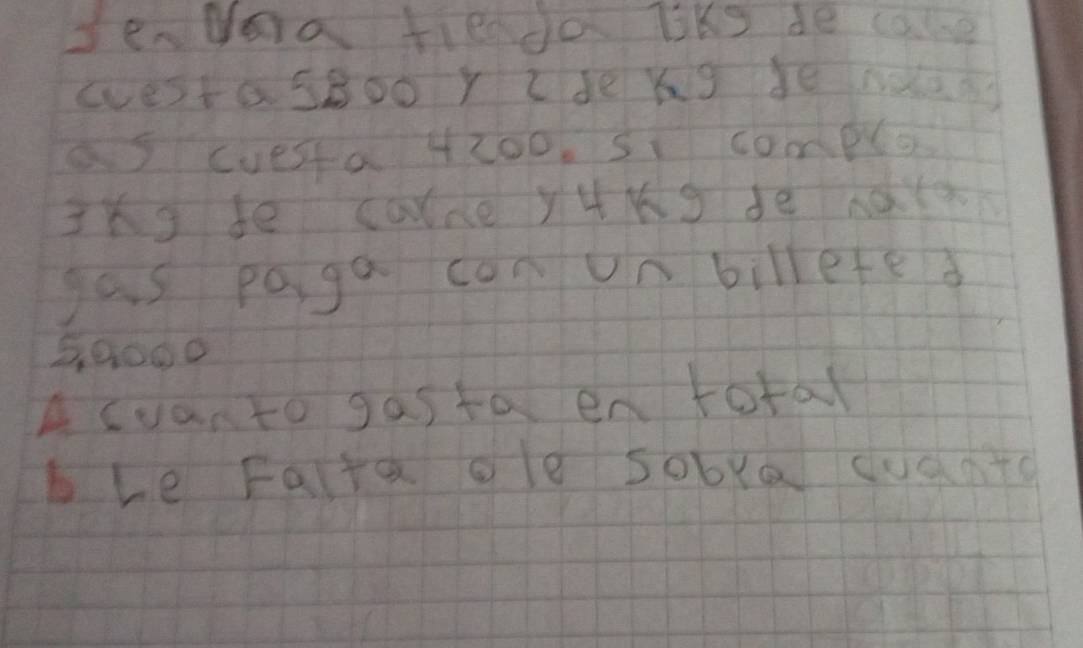 3 en Una tienda 1 kg de carne
cuesta 5800 y 2 de kg de naranj
as cuesta 4200. si compra
3 kg de carne y 4 kg de naran
gas paga con un billete d
5,0000
A cuanto gasta en total
b Le Falta o le sobra cuanto